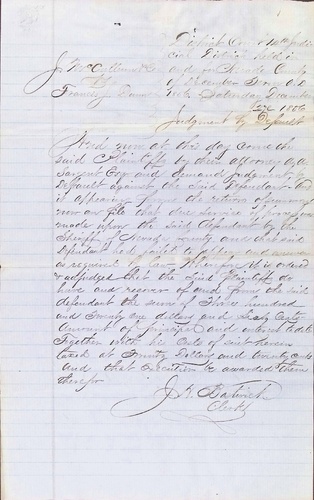 District Court 14th Judi
cial District held in
J. McCallum & Co and for Nevada County
vs November Term A.D.
Francis Dunn 1866 Saturday December
22d 1866
Judgment by Default
And now at this day came the
said Plaintiffs by their attorney A. A.
Sargent Esq and demand Judgment by
Default against the said Defendant. And
it appearing from the return of summons
now on file that due service of process
made upon the said Defendant by the
Sheriff of Nevada county and that said
Defendant had failed to appear and answer
as required by law. Wherefore it is ordered
& adjudged that the said Plaintiffs do
have and recover of and from the said
defendant the sum of Three hundred
and Twenty one dollars and sixty Cents
Amount of principal and interest to date
Together with his Costs of suit herein
taxed at Twenty Dollars and twenty cents
And that execution be awarded them
therefor
Clerk